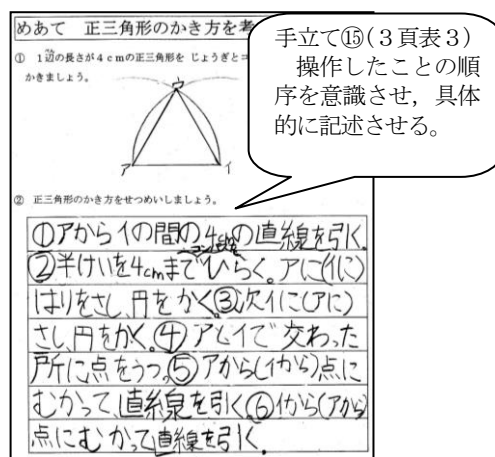 めあて　正三角形のかき方を考
① 1辺の長さが4cmの正三角形を じょうぎとコ
かきましょう。
ウ
ア
イ
② 正三角形のかき方をせつめいしましょう。
①アからイの間の4cmの直線を引く。
②半けいを4cmまでひらく。アに(イに)
はりをさし、円をかく。③次イに(アに)
さし、円をかく。④アとイで交わった
所に点をうつ。⑤アから(イから)点に
むかって、直線を引く。⑥イから(アから)
点にむかって直線を引く。
手立て⑮(3頁表3)
操作したことの順
序を意識させ，具体
的に記述させる。